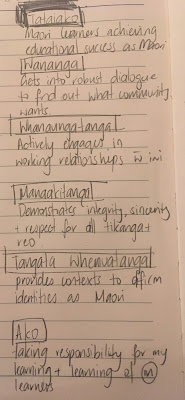 Tataiako
Maori learners achieving
educational success as Maori
Wananga
Gets into robust dialogue
to find out what community
wants
Whanaungatanga
Actively engages in
working relationships
Manaakitanga
Demonstrates integrity, sincerity
+ respect for all tikanga +
reo
Tangata Whenuatanga
provides contexts to affirm
identities as Maori
Ako
taking responsibility for my
learning + learning of m
learners